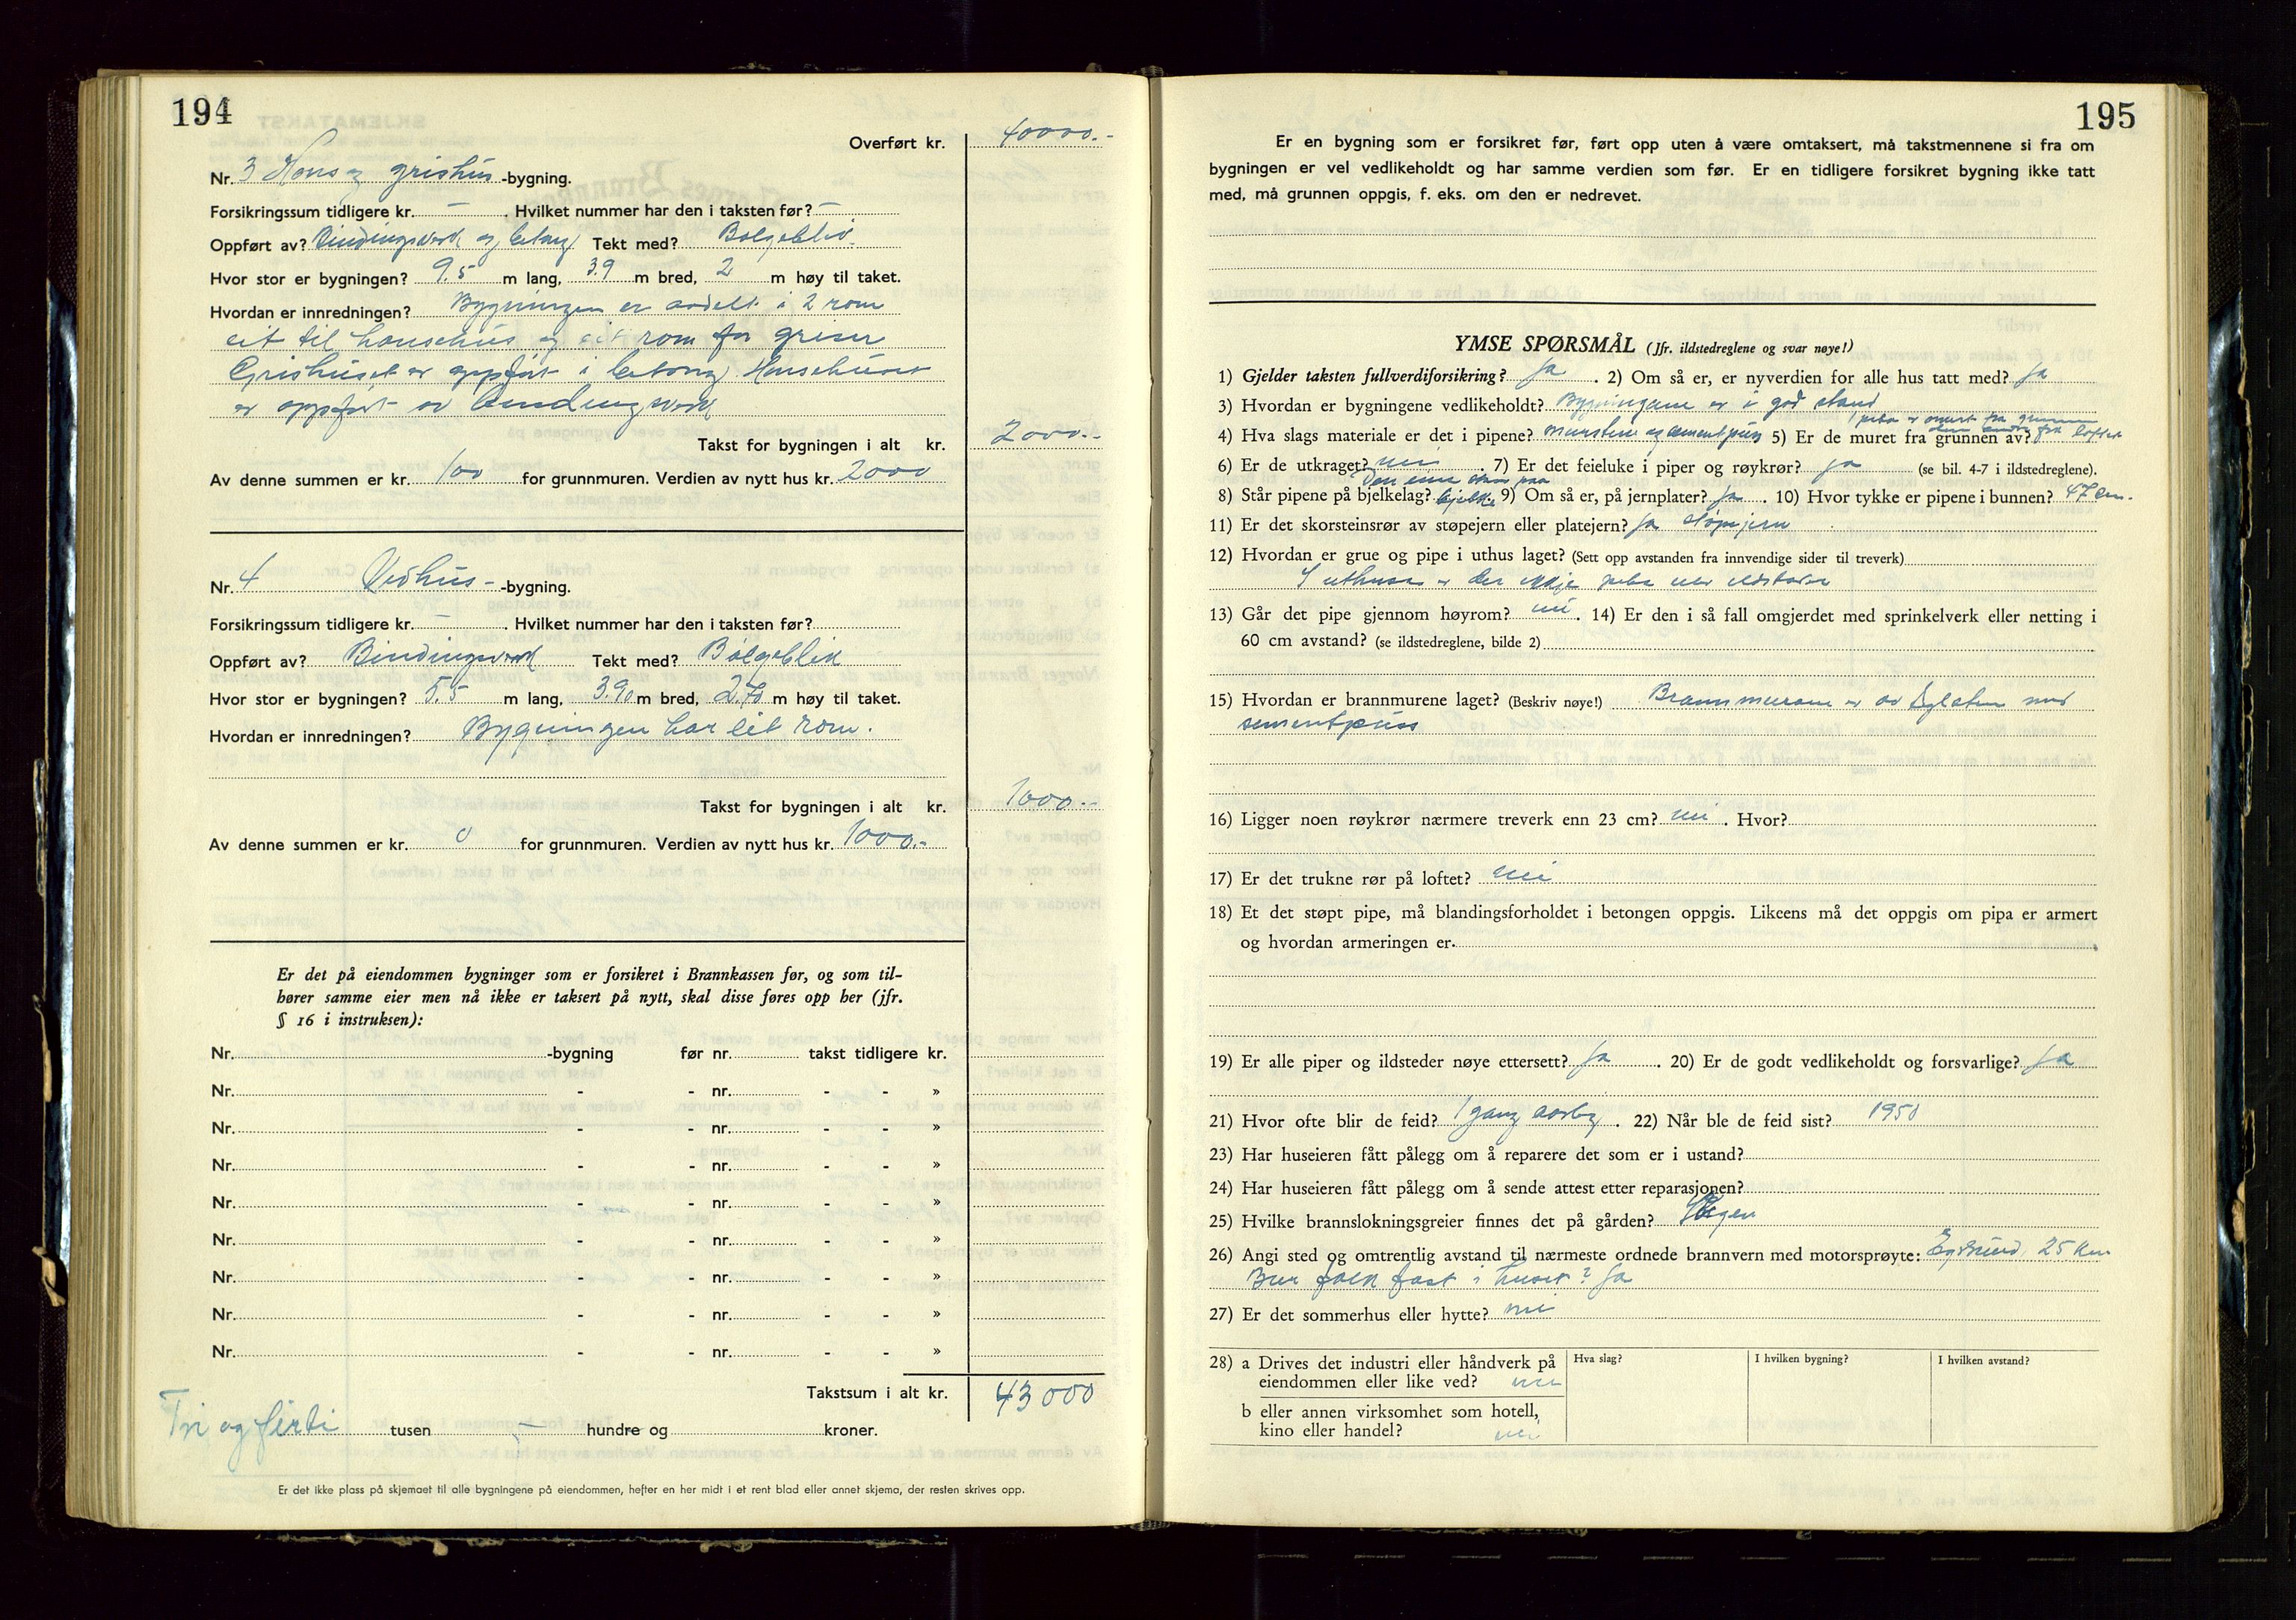 194
Overført kr. 40000.-
Nr. 3 Høns og grishus -bygning.
Forsikringssum tidligere kr. - . Hvilket nummer har den i taksten før? -
Oppført av? Bindingsverk og betong Tekt med? Bølgeblik.
Hvor stor er bygningen? 9.5 m lang, 3.9 m bred, 2 m høy til taket.
Hvordan er innredningen? Bygningen er avdelt i 2 rom
eit til hønsehus og eit rom for griser
Grishuset er oppført i betong. Hønsehuset
er oppført av bindingsverk
Takst for bygningen i alt kr. 2000.-
Av denne summen er kr. 100 for grunnmuren. Verdien av nytt hus kr. 2000
Nr. 4 Vedhus- -bygning.
Forsikringssum tidligere kr. - . Hvilket nummer har den i taksten før?
Oppført av? Bindingsverk Tekt med? Bølgeblik
Hvor stor er bygningen? 5.5 m lang, 3.90 m bred, 2.70 m høy til taket.
Hvordan er innredningen? Bygningen har eit rom.
Takst for bygningen i alt kr. 1000.-
Av denne summen er kr. 0 for grunnmuren. Verdien av nytt hus kr. 1000.-
Er det på eiendommen bygninger som er forsikret i Brannkassen før, og som til-
hører samme eier men nå ikke er taksert på nytt, skal disse føres opp her (jfr.
§ 16 i instruksen):
Nr. -bygning før nr. takst tidligere kr.
Nr. - - nr. - - »
Nr. - - nr. - - »
Nr. - - nr. - - »
Nr. - - nr. - - »
Nr. - - nr. - - »
Nr. - - nr. - - »
Nr. - - nr. - - »
Nr. - - nr. - - »
Takstsum i alt kr. 43 000
Tri og førti tusen - hundre og kroner.
Er det ikke plass på skjemaet til alle bygningene på eiendommen, hefter en her midt i et rent blad eller annet skjema, der resten skrives opp.
195
Er en bygning som er forsikret før, ført opp uten å være omtaksert, må takstmennene si fra om
bygningen er vel vedlikeholdt og har samme verdien som før. Er en tidligere forsikret bygning ikke tatt
med, må grunnen oppgis, f. eks. om den er nedrevet.
YMSE SPØRSMÅL (Jfr. ildstedreglene og svar nøye!)
1) Gjelder taksten fullverdiforsikring? Ja . 2) Om så er, er nyverdien for alle hus tatt med? Ja
3) Hvordan er bygningene vedlikeholdt? Bygningane er i god stand
1 pipe er muret fra grunnen
4) Hva slags materiale er det i pipene? murstein og cementpuss 5) Er de muret fra grunnen av? den andre fra loftet
6) Er de utkraget? nei . 7) Er det feieluke i piper og røykrør? ja (se bil. 4-7 i ildstedreglene).
Den eine staar paa
8) Står pipene på bjelkelag? bjelke 9) Om så er, på jernplater? Ja . 10) Hvor tykke er pipene i bunnen? 47 cm.
11) Er det skorsteinsrør av støpejern eller platejern? Ja støpejern
12) Hvordan er grue og pipe i uthus laget? (Sett opp avstanden fra innvendige sider til treverk)
I uthuset er der ikkje pipe eller eldstader
13) Går det pipe gjennom høyrom? nei . 14) Er den i så fall omgjerdet med sprinkelverk eller netting i
60 cm avstand? (se ildstedreglene, bilde 2)
15) Hvordan er brannmurene laget? (Beskriv nøye!) Brannmurane er av teglstein med
sementpuss
16) Ligger noen røykrør nærmere treverk enn 23 cm? nei . Hvor?
17) Er det trukne rør på loftet? nei
18) Et det støpt pipe, må blandingsforholdet i betongen oppgis. Likeens må det oppgis om pipa er armert
og hvordan armeringen er.
19) Er alle piper og ildsteder nøye ettersett? Ja . 20) Er de godt vedlikeholdt og forsvarlige? Ja
21) Hvor ofte blir de feid? 1 gang aarleg . 22) Når ble de feid sist? 1950
23) Har huseieren fått pålegg om å reparere det som er i ustand?
24) Har huseieren fått pålegg om å sende attest etter reparasjonen?
25) Hvilke brannslokningsgreier finnes det på gården? Ingen
26) Angi sted og omtrentlig avstand til nærmeste ordnede brannvern med motorsprøyte: Egersund, 25 km
Bur folk fast i huset? Ja
27) Er det sommerhus eller hytte? nei
28) a Drives det industri eller håndverk på
eiendommen eller like ved? nei
Hva slag? I hvilken bygning? I hvilken avstand?
b eller annen virksomhet som hotell,
kino eller handel? nei